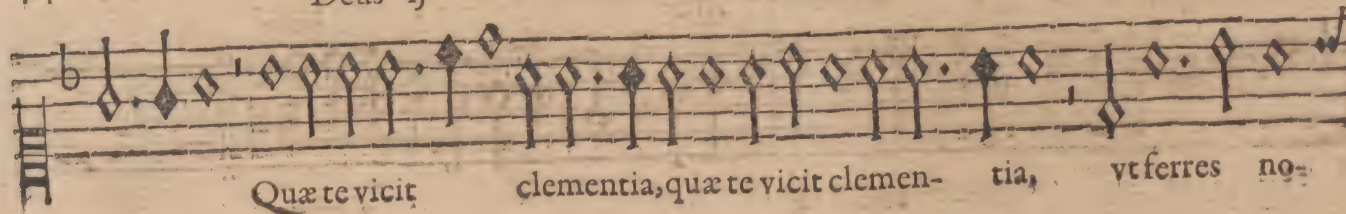 Deus ij
Quæ te vicit clementia, quæ te vicit clemen- tia, vt ferres no-